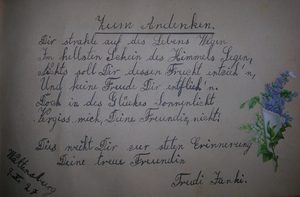 Zum Andenken.
Dir strahle auf des Lebens Wegen
Im hellsten Schein des Himmels Segen,
Nichts soll Dir dessen Frucht entzieh'n,
Und keine Freude Dir entflieh'n.
Doch in des Glückes Sonnenlicht
Vergiss mich, Deine Freundin, nicht!
Dies weiht Dir zur steten Erinnerung
Deine treue Freundin
Trudi